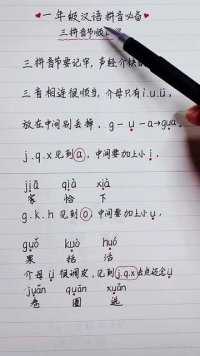 一年级汉语拼音必备
三拼音节
三拼音节要记牢,声经介快
三音相连很顺当,介母只有i.u.ü,
放在中间别丢掉,g-u-a→guɑ
j.q.x见到ɑ,中间要加上小i,
jiā qià xià
家 恰 下
g.k.h见到o,中间要加上小u,
guǒ kuò huó
果 括 活
介母ü很调皮,见到j.q.x去点还念ü
juǎn quān xuǎn
卷 圈 选